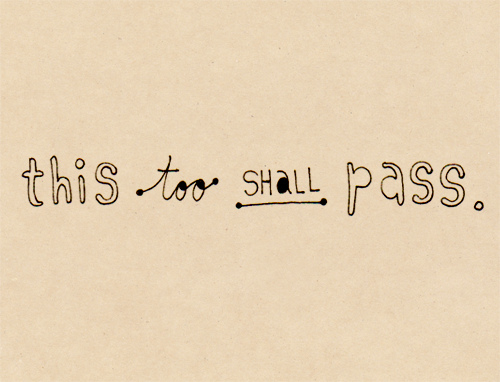 this too SHaLL pass.